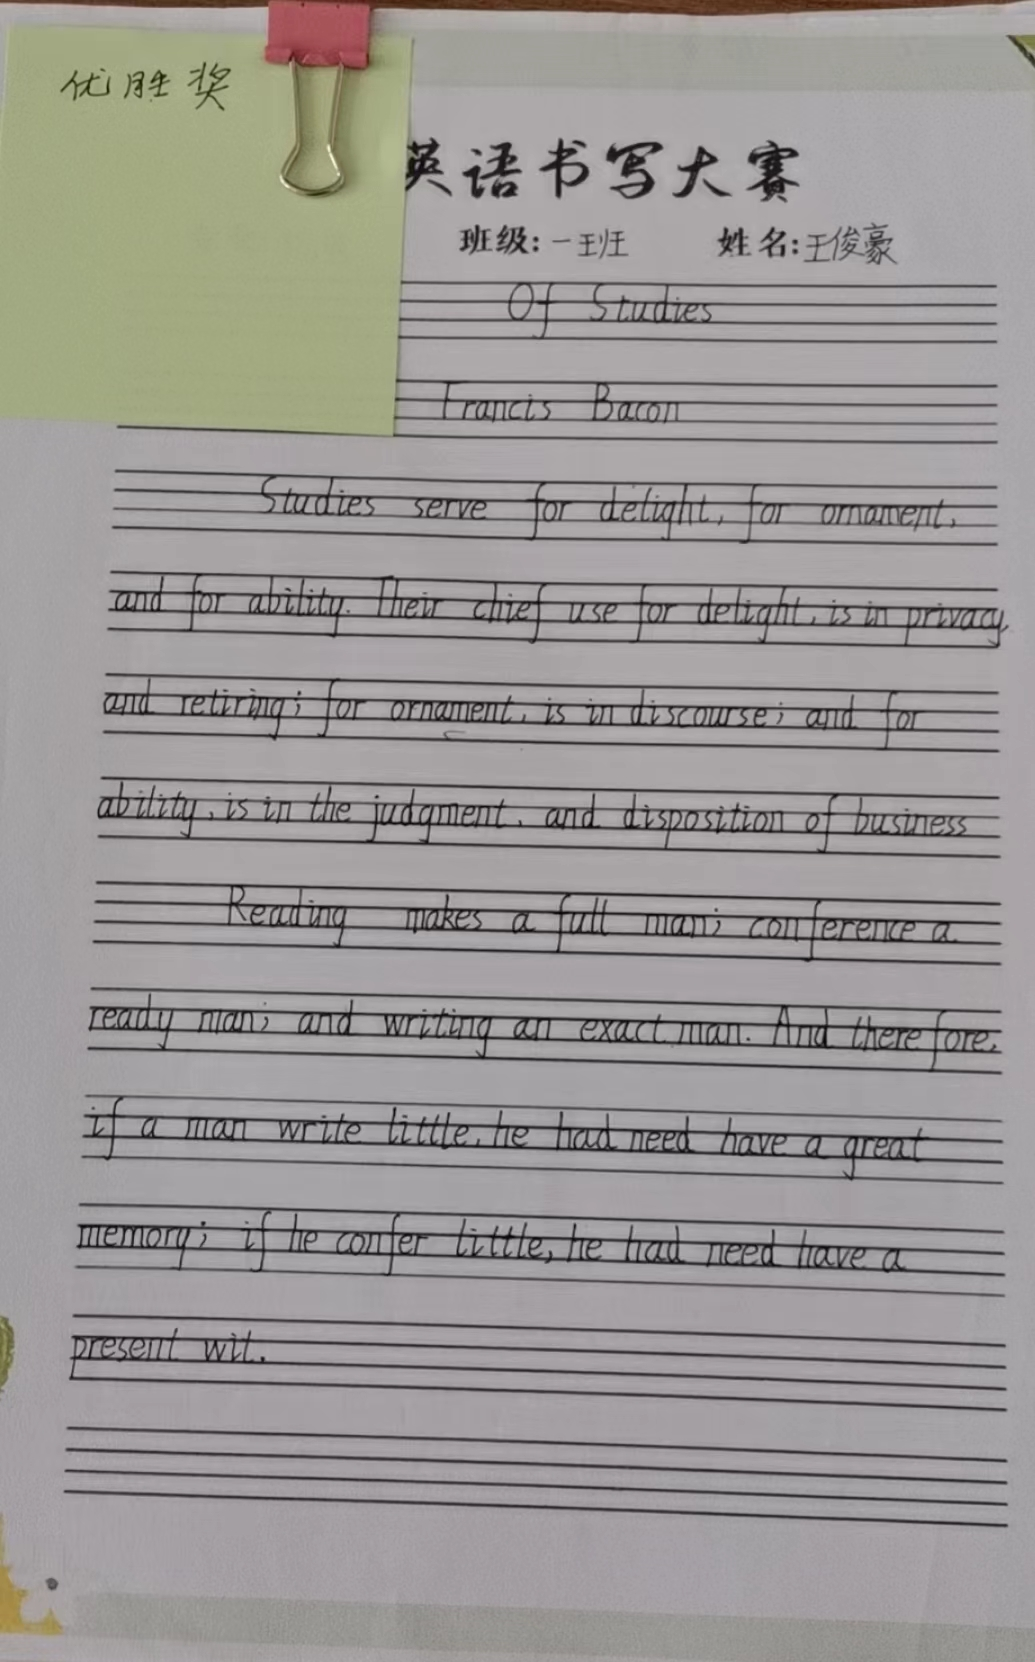 优胜奖
英语书写大赛
班级:一班 姓名:王俊豪
Of Studies
Francis Bacon
Studies serve for delight, for ornament,
and for ability. Their chief use for delight, is in privacy
and retiring; for ornament, is in discourse; and for
ability, is in the judgment, and disposition of business
Reading makes a full man; conference a
ready man; and writing an exact man. And therefore,
if a man write little, he had need have a great
memory; if he confer little, he had need have a
present wit.